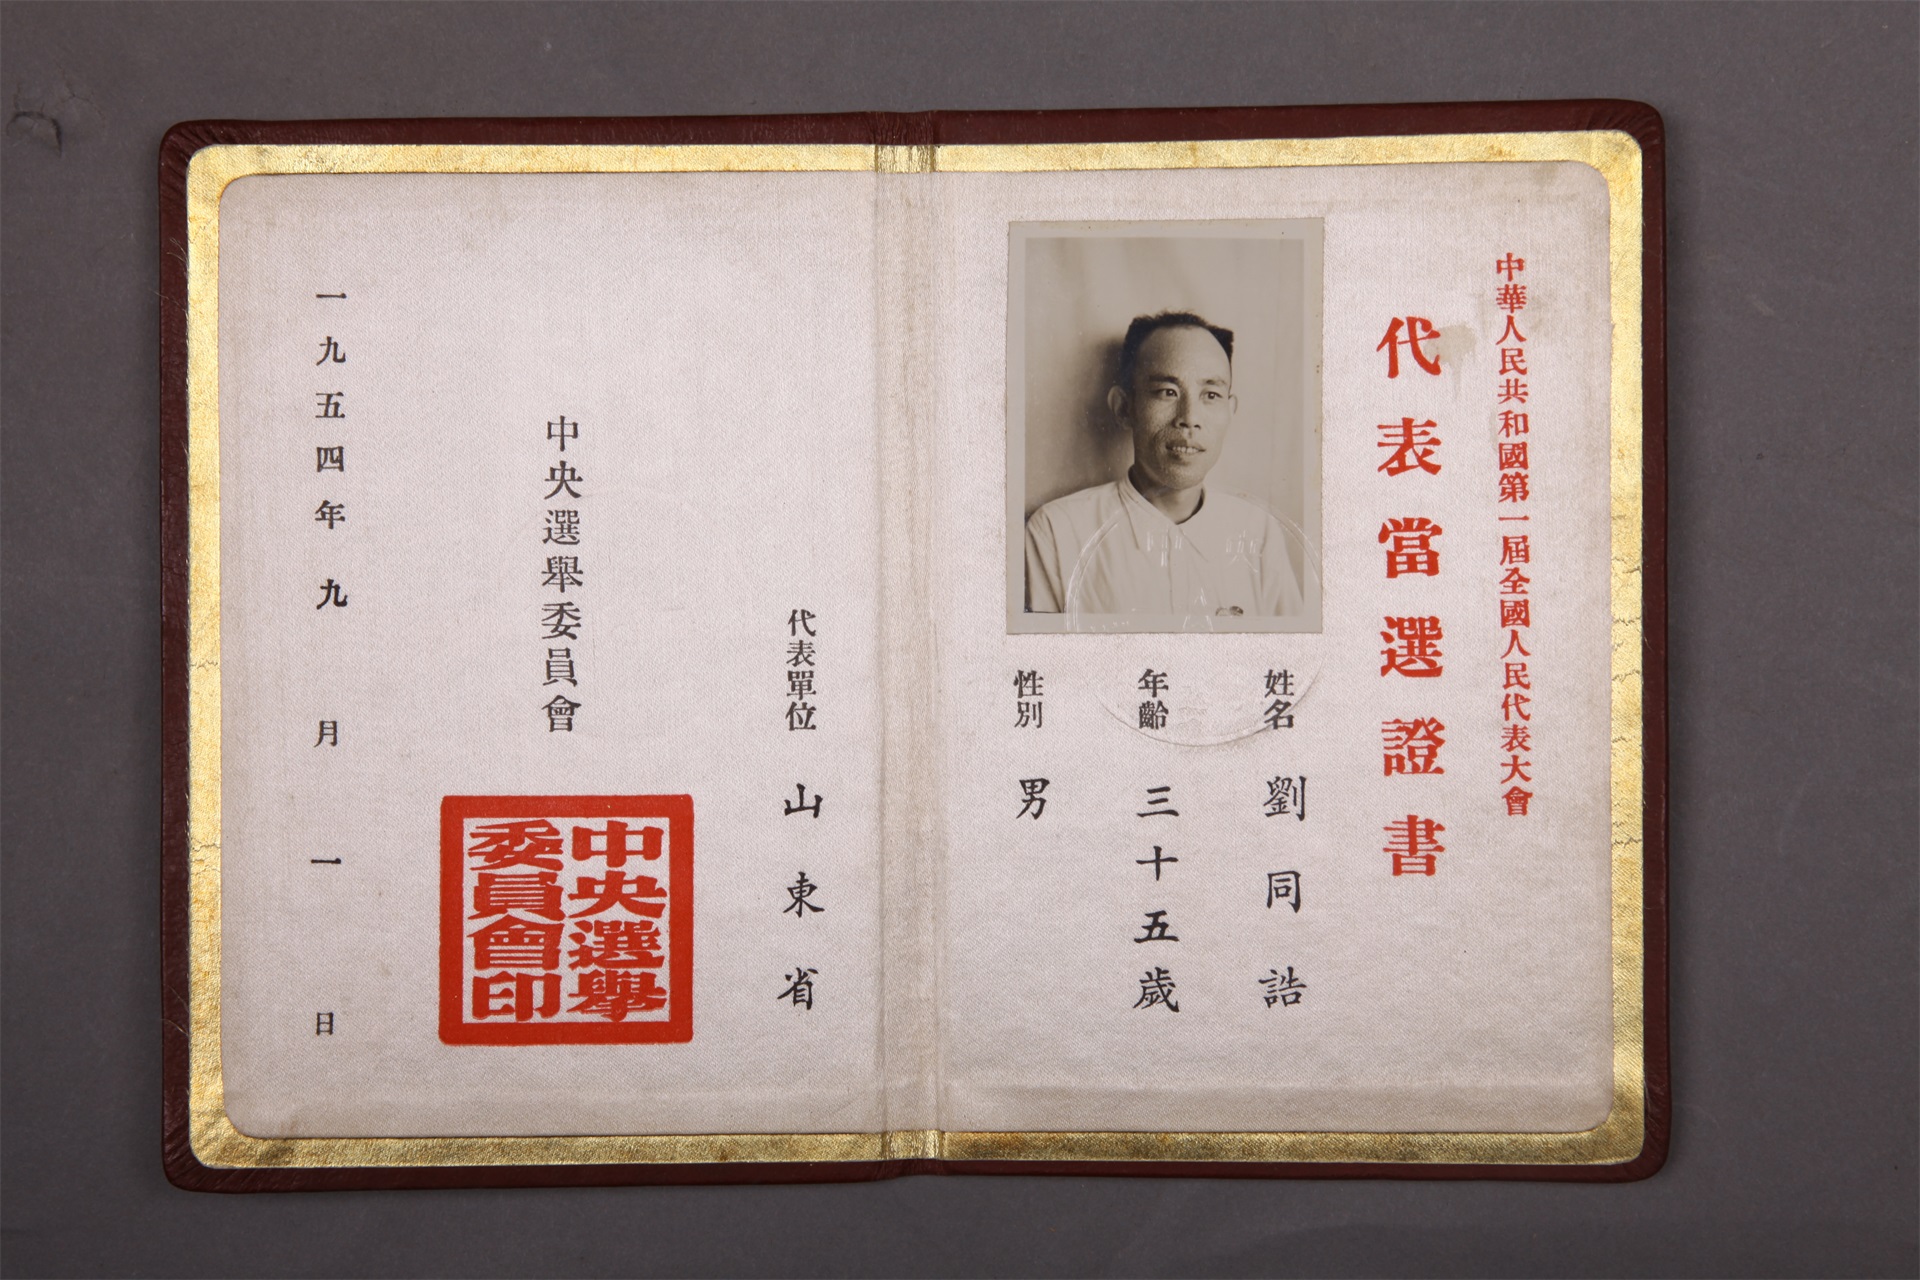 中華人民共和國第一屆全國人民代表大會
代表當選證書
姓名 劉同誥
年齡 三十五歲
性別 男
代表單位 山東省
中央選舉委員會
中央選舉
委員會印
一九五四年九月一日